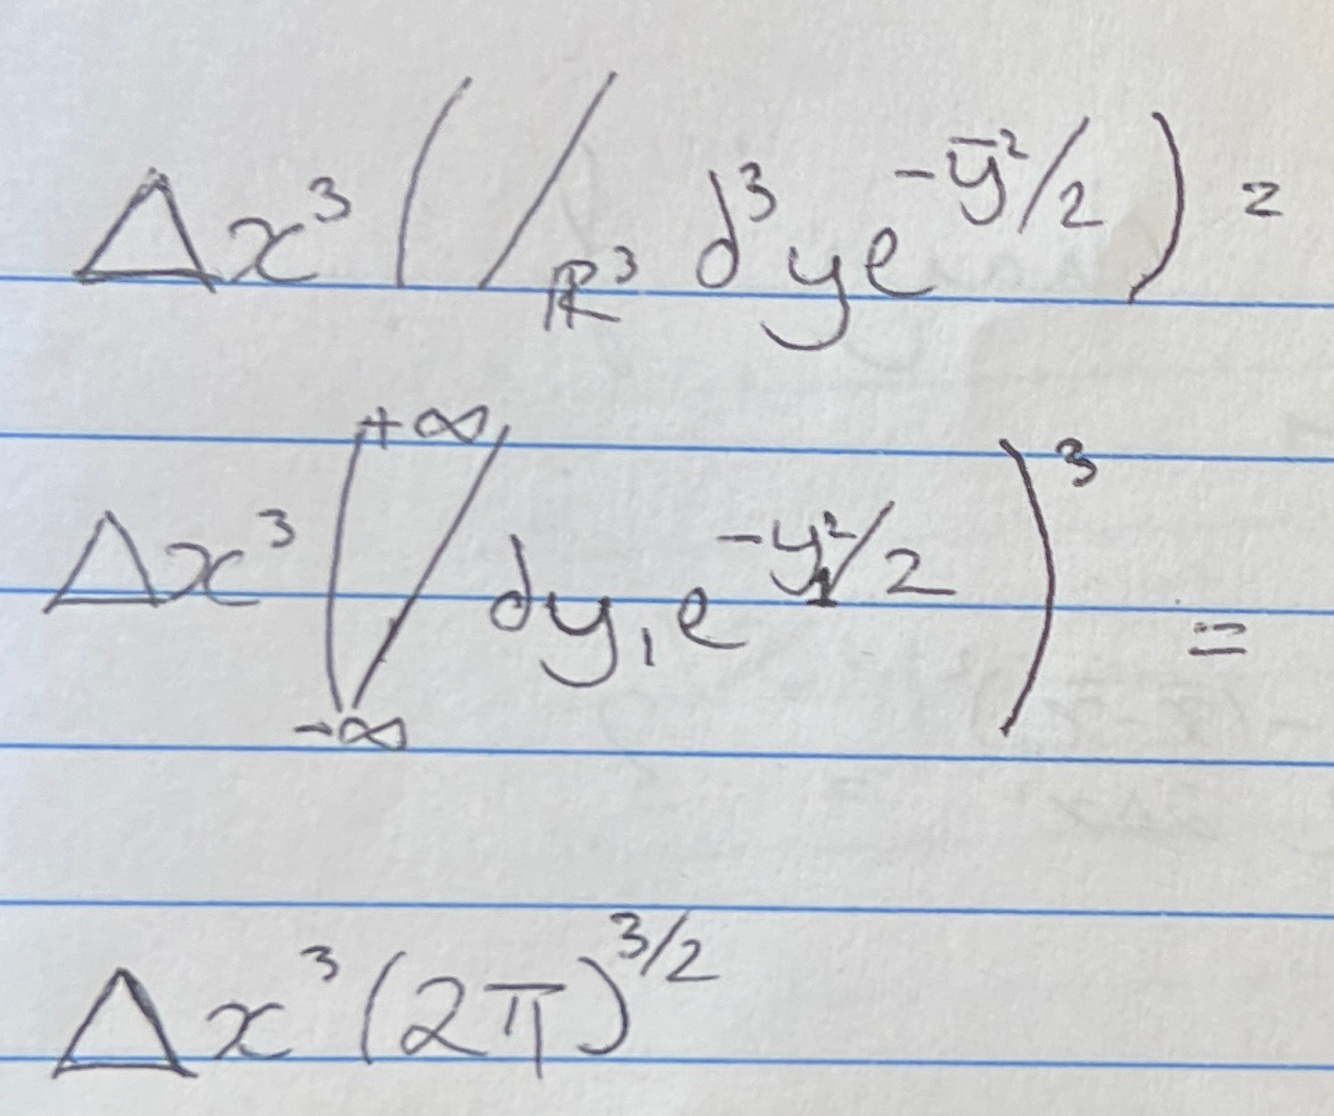 Δx³ (∫_ℝ³ d³y e^{-ȳ²/2}) =
Δx³ (∫_{-∞}^{+∞} dy₁ e^{-y₁²/2})³ =
Δx³ (2π)^{3/2}